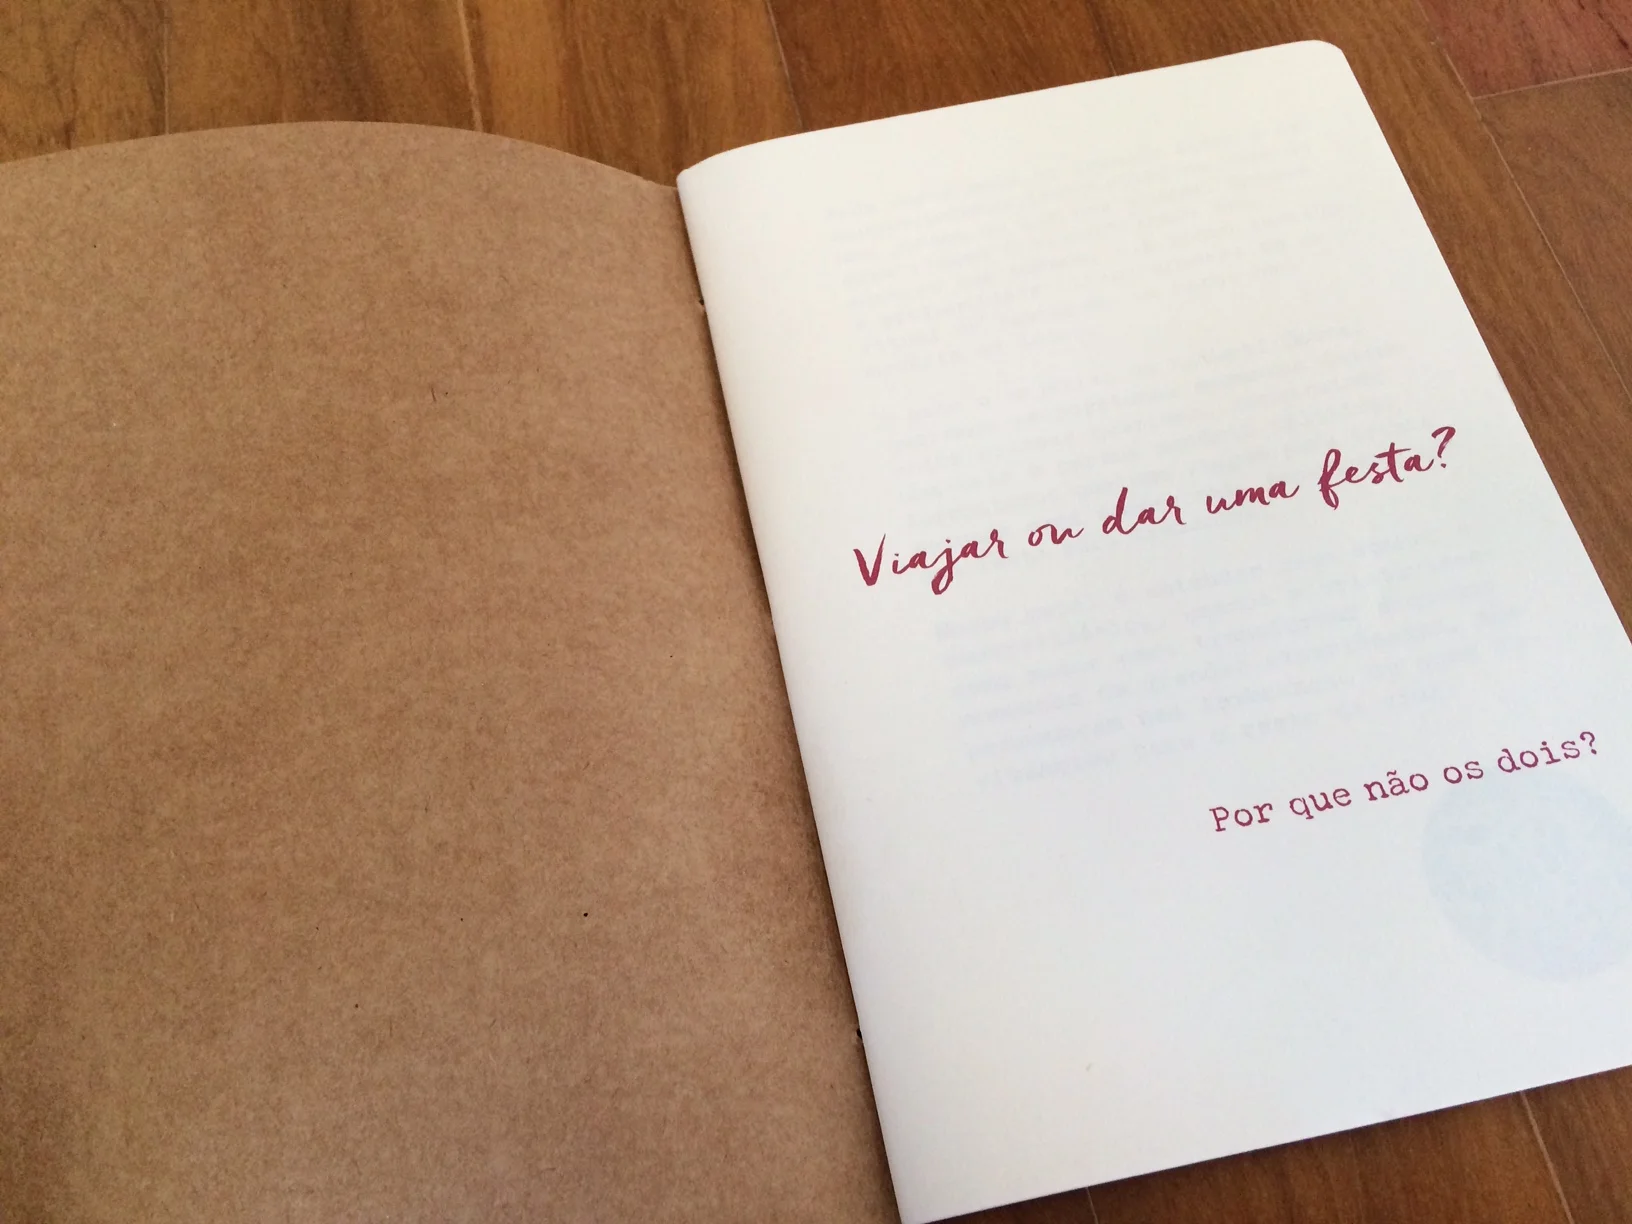 Viajar ou dar uma festa?
Por que não os dois?